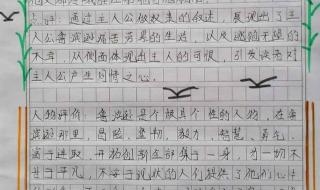 点评:通过主人公叙事的叙述,展现出了主
人公鲁滨逊痛苦劳累的生活,以及遭
不幸,从侧面体现出主人的可恨,引发读者对
主人公产生同情之心。
人物评价:鲁滨逊是个极具个性的人物,在鲁
滨逊那里,冒险、坚韧、毅力、智慧、勇气、
富于进取、开拓创新全部集于一身,为一切不
甘于平凡,不安于现状的人们提供了他们心中